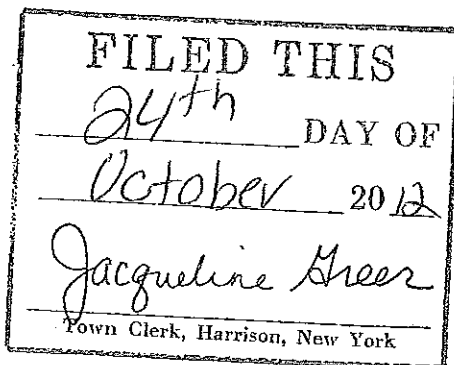 FILED THIS
24th DAY OF
October 2012
Jacqueline Greer
Town Clerk, Harrison, New York